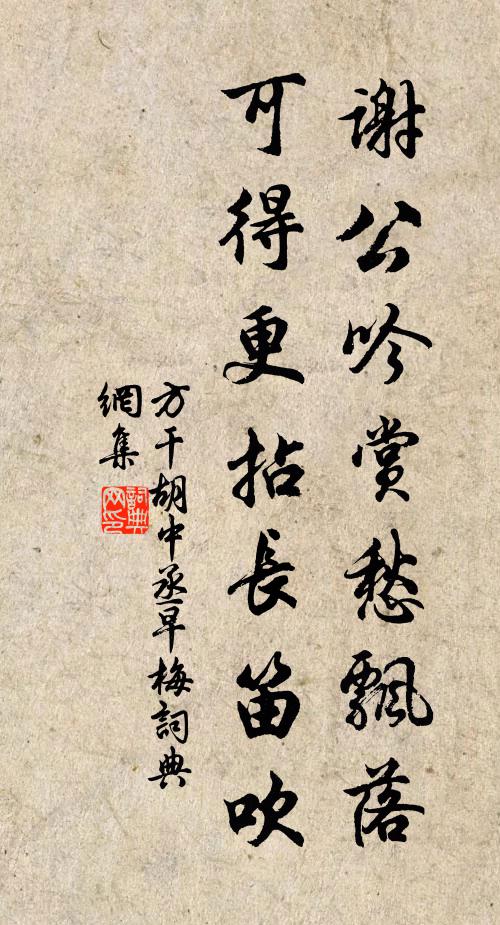 謝公吟賞愁飄落
可得更拈長笛吹
方干胡中丞早梅詞典
網集
詞典
网印